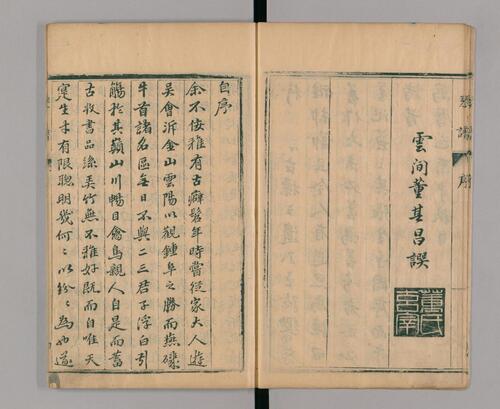 琴譜 序
雲間董其昌譔
董氏玄宰
自序
余不佞雅有古癖髫年時嘗從家大人遊
吳會泝金山雲陽以觀鍾阜之勝而燕磯
牛首諸名區無日不與二三君子浮白引
觴於其巔山川暢目禽鳥親人自是而蓄
古收書品絲弄竹無不雅好既而自唯天
寔生才有限聰明幾何〻以紛〻為也遂